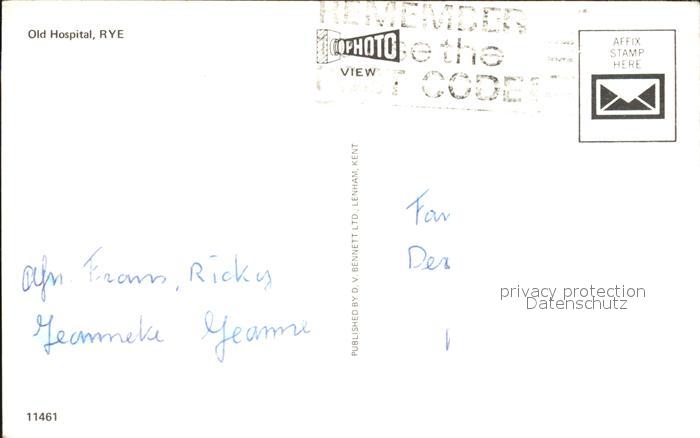 Old Hospital, RYE
REMEMBER
the
CODE
PHOTO
VIEW
AFFIX
STAMP
HERE
PUBLISHED BY D. V. BENNETT LTD., LENHAM, KENT
Frans, Ricky
Jeanneke Jeanne
privacy protection
Datenschutz
11461